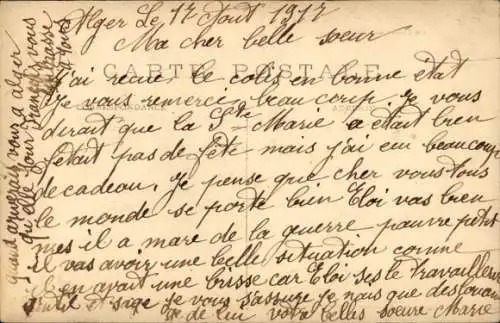 Alger Le 17 Aout 1917
Ma cher belle soeur
CARTE POSTALE
J'ai recue le colis en bonne état
Je vous remerci beaucoup. Je vous
dirait que la Ste Marie a était bien
J'était pas de fête mais j'ai eu beaucoup
de cadeau. Je pense que cher vous tous
le monde se porte bien Eloi vas bien
mes il a mare de la guerre pauvre petit
il vas avoir une belle situation comme
il en avait une brisse car Eloi ses le travailleur
gentil et sage je vous s'assure je nais que des louan
de lui votre belles soeure Marie
quand a vous a alger
qu'elle jour François vous
embrasse
a tous